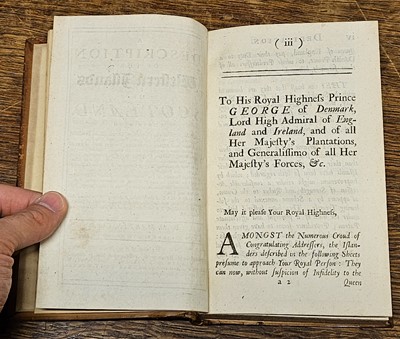 ( iii )
To His Royal Highneſs Prince
GEORGE of Denmark,
Lord High Admiral of Eng-
land and Ireland, and of all
Her Majeſty's Plantations,
and Generaliſſimo of all Her
Majeſty's Forces, &c.
May it pleaſe Your Royal Highneſs,
AMONGST the Numerous Croud of
Congratulating Addreſſers, the Iſlan-
ders deſcribed in the following Sheets
preſume to approach Your Royal Perſon: They
can now, without ſuſpicion of Infidelity to the
a 2 Queen